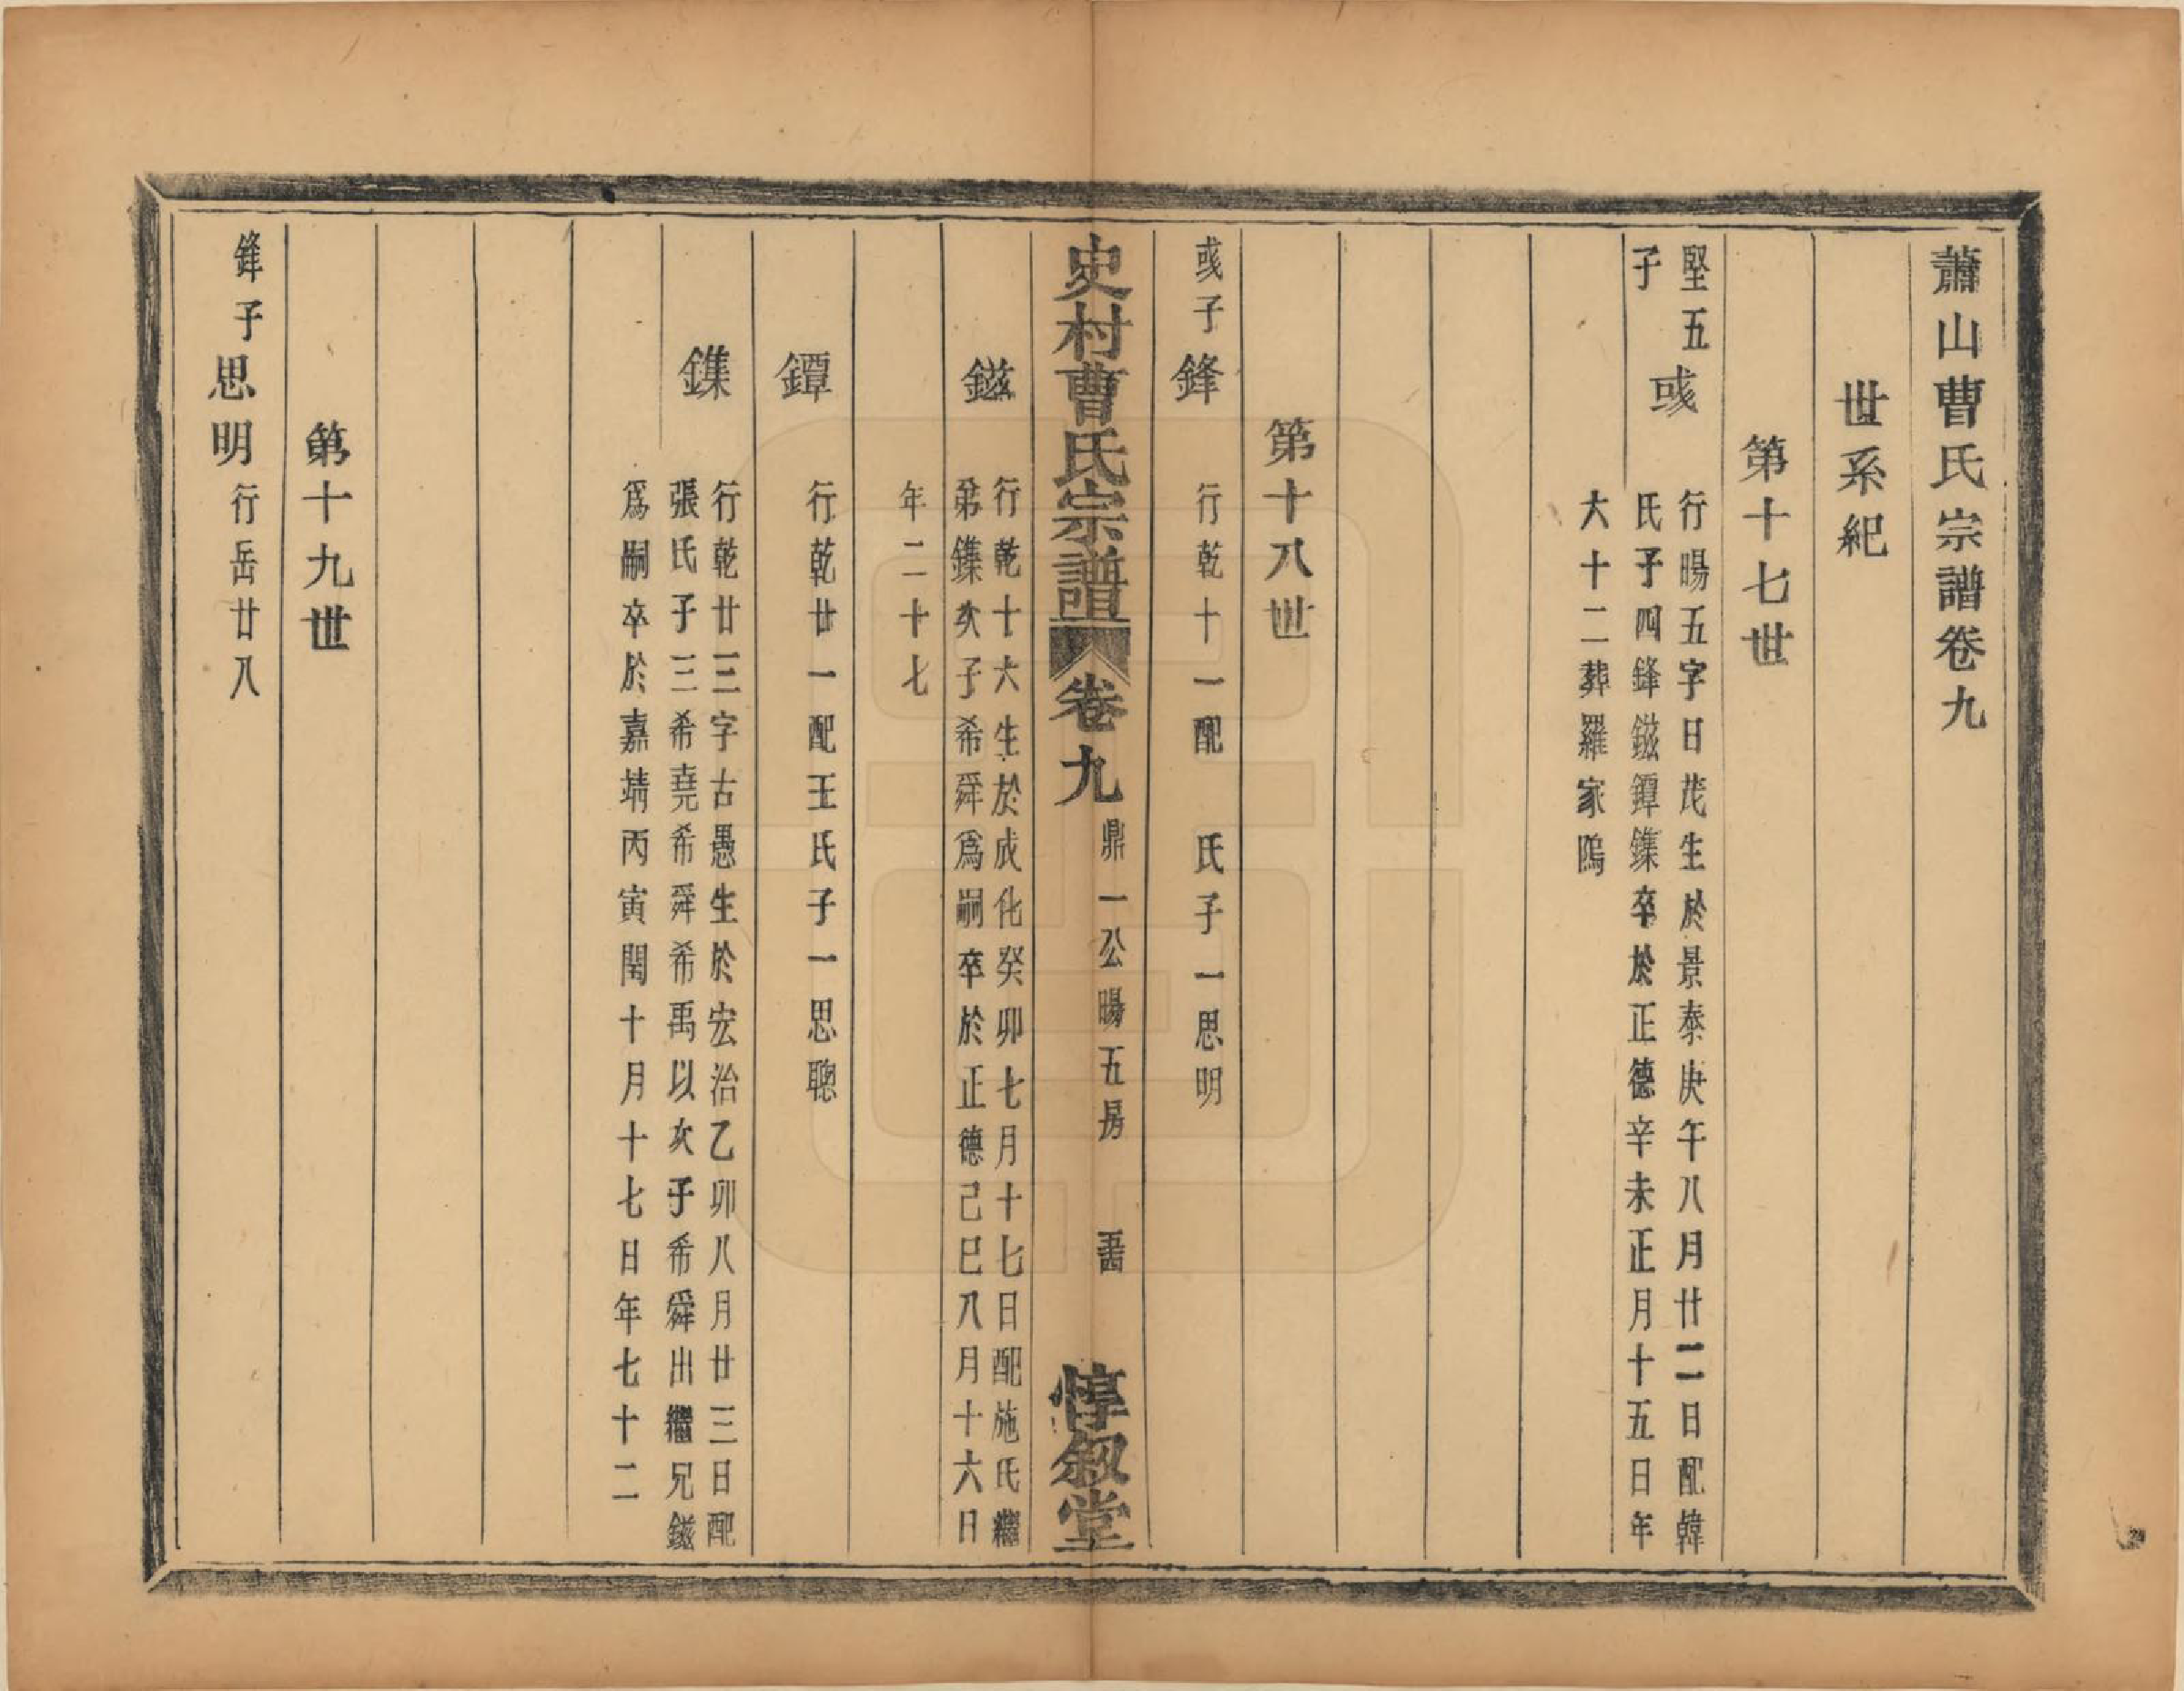 蕭山曹氏宗譜卷九
世系紀
第十七世
堅五
子
彧
行暘五字日茂生於景泰庚午八月廿二日配韓
氏子四鋒鎡鐔鏶卒於正德辛未正月十五日年
大十二葬羅家隖
第十八世
彧子
鋒
行乾十一配　氏子一思明
史村曹氏宗譜
卷九
鼎一公暘五房
惇叙堂
鎡
行乾十六生於成化癸卯七月十七日配施氏繼
弟鏶次子希舜爲嗣卒於正德己巳八月十六日
年二十七
鐔
行乾廿一配王氏子一思聰
鏶
行乾廿三字古愚生於宏治乙卯八月廿三日配
張氏子三希堯希舜希禹以次子希舜出繼兄鎡
爲嗣卒於嘉靖丙寅閏十月十七日年七十二
第十九世
鋒子
思明
行岳廿八